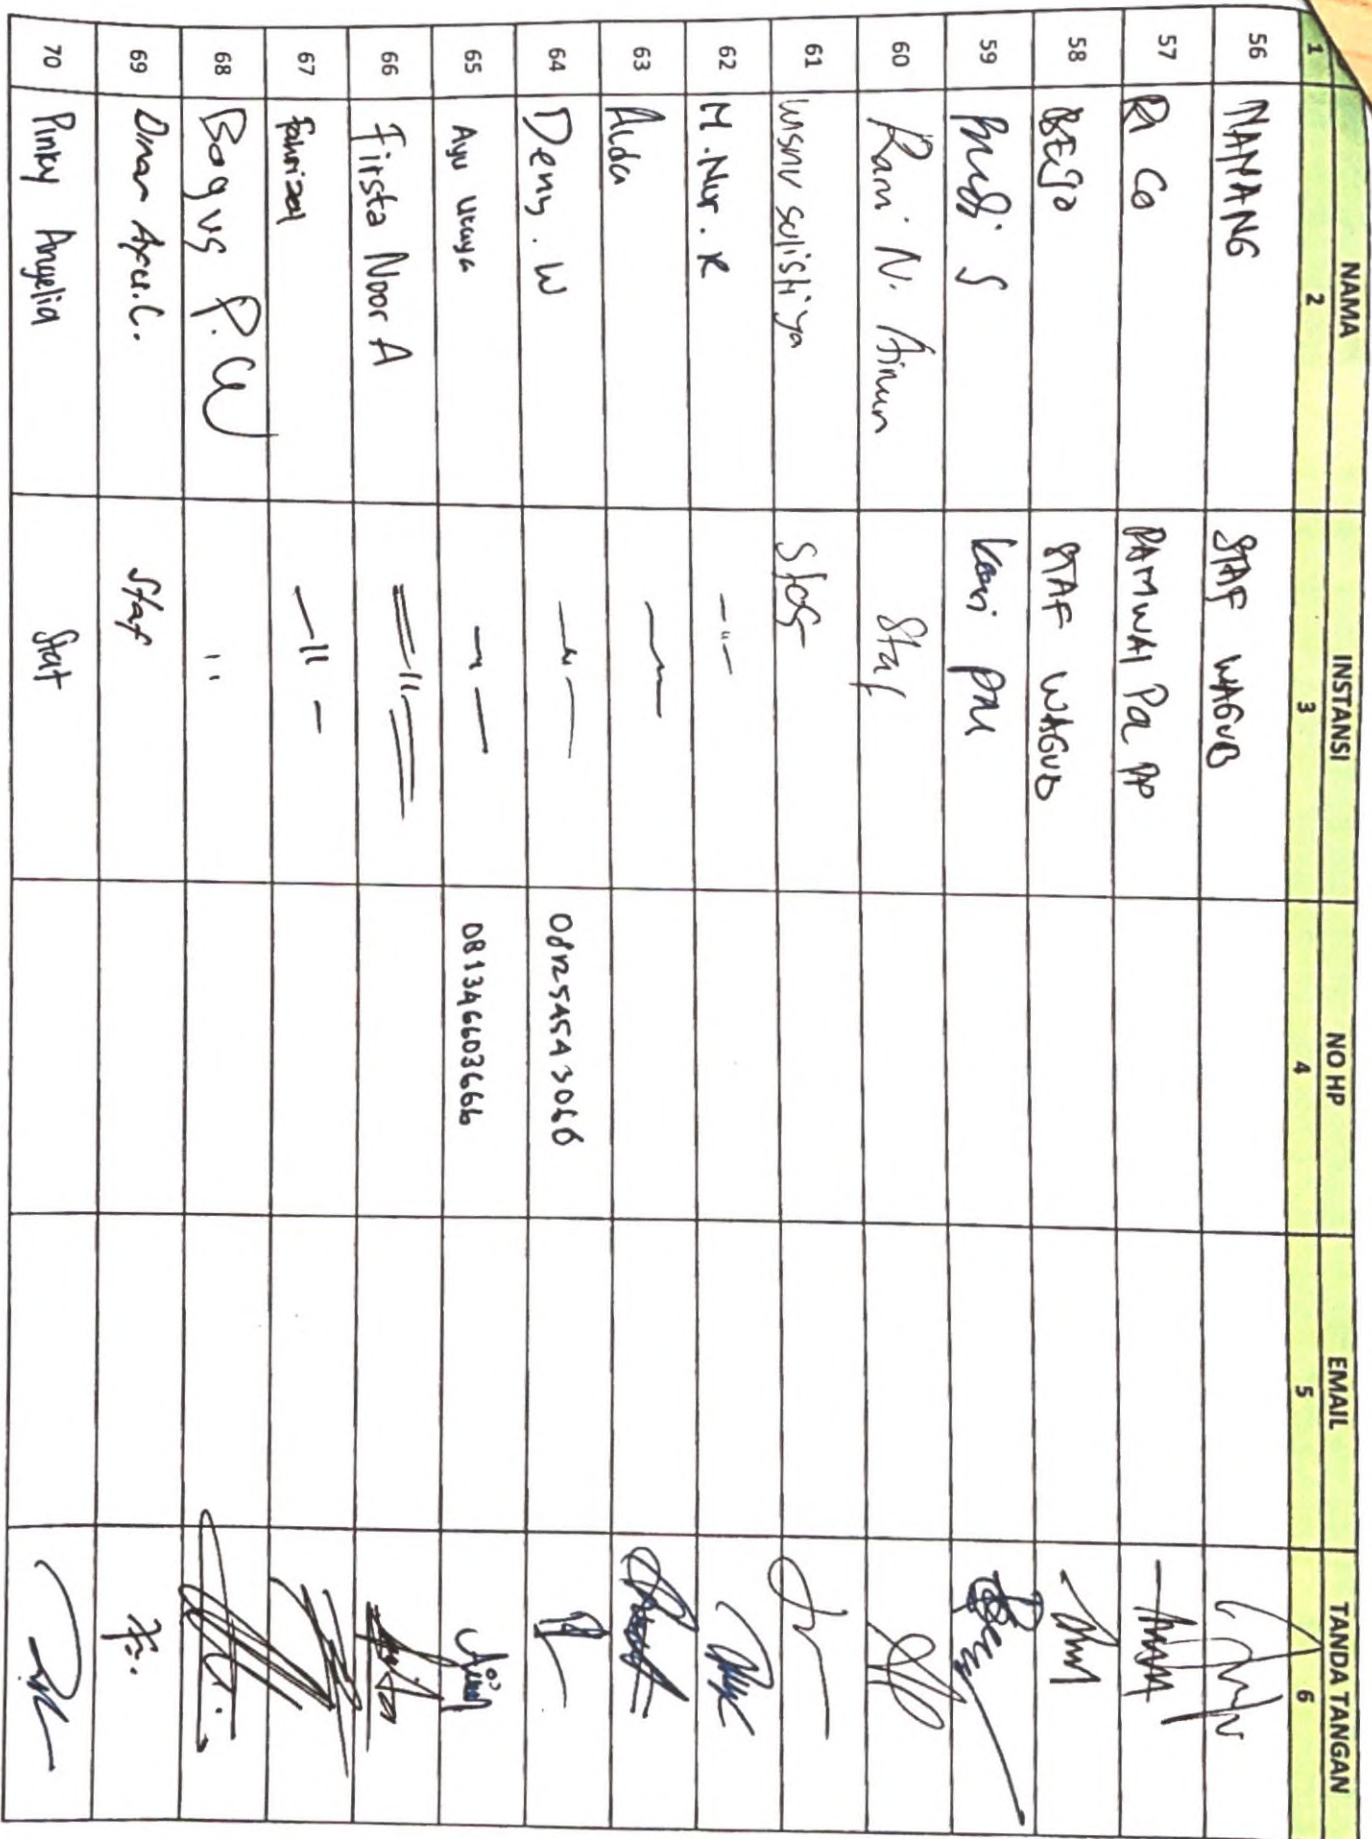 NAMA INSTANSI NO HP EMAIL TANDA TANGAN
1 2 3 4 5 6
56 NANANG STAF WAGUB
57 Ri Co PAMWAL
58 STAF WAGUB
59 Budi S
60 Rani N. Ainun Staf
61 Wisnu sulistiya Staf
62 M. Nur. R -"-
63 Alda
64 Deny. W 081254543066
65 Ayu 081346603666
66 Firsta Noor A =〃=
67 Fahrizal -〃-
68 Bagus P. W "
69 Staf
70 Pinky Angelia Staf